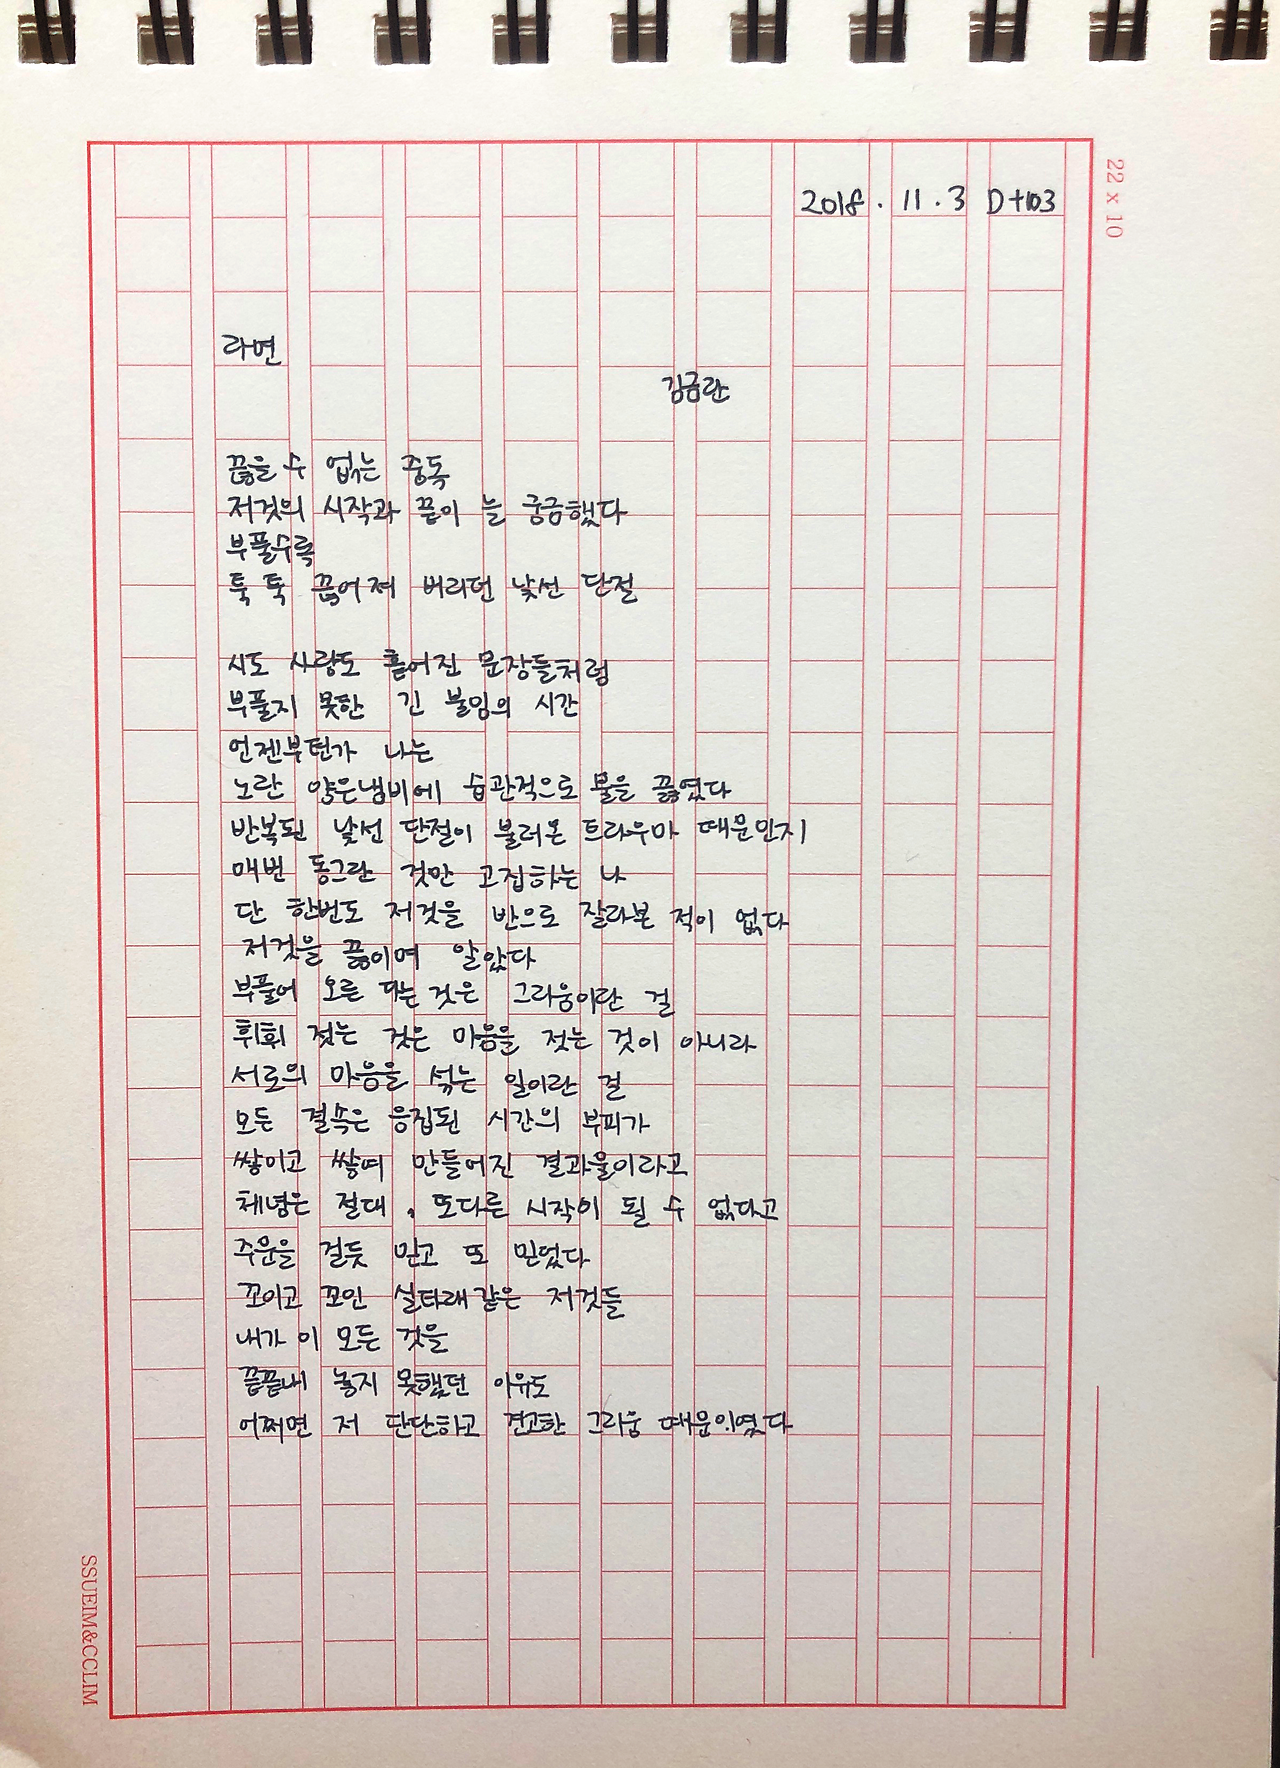 22 x 10
2018. 11. 3 D+103
라면
김금란
끊을 수 없는 중독
저것의 시작과 끝이 늘 궁금했다
부풀수록
툭 툭 끊어져 버리던 낯선 단절
시도 사랑도 흩어진 문장들처럼
부풀지 못한 긴 불임의 시간
언젠부턴가 나는
노란 양은냄비에 습관적으로 물을 끓였다
반복된 낯선 단절이 불러온 트라우마 때문인지
매번 동그란 것만 고집하는 나
단 한번도 저것을 반으로 잘라본 적이 없다
저것을 끓이며 알았다
부풀어 오른 다는 것은 그리움이란 걸
휘휘 젓는 것은 마음을 젓는 것이 아니라
서로의 마음을 섞는 일이란 걸
모든 결속은 응집된 시간의 부피가
쌓이고 쌓여 만들어진 결과물이라고
체념은 절대, 또다른 시작이 될 수 없다고
주문을 걸듯 믿고 또 믿었다
꼬이고 꼬인 실타래같은 저것들
내가 이 모든 것을
끝끝내 놓지 못했던 이유도
어쩌면 저 단단하고 견고한 그리움 때문이였다
SSUEIM&CCLIM